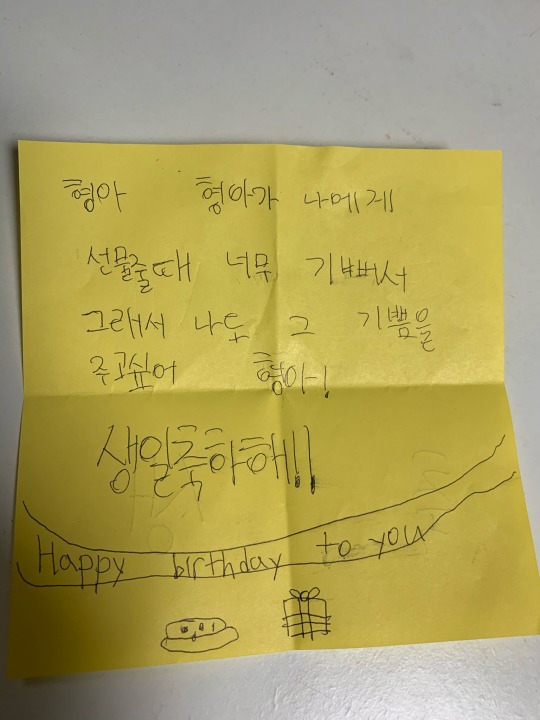 형아 형아가 나에게
선물줄때 너무 기뻐서
그래서 나도 그 기쁨을
주고싶어 형아!
생일축하해!!
Happy birthday to you